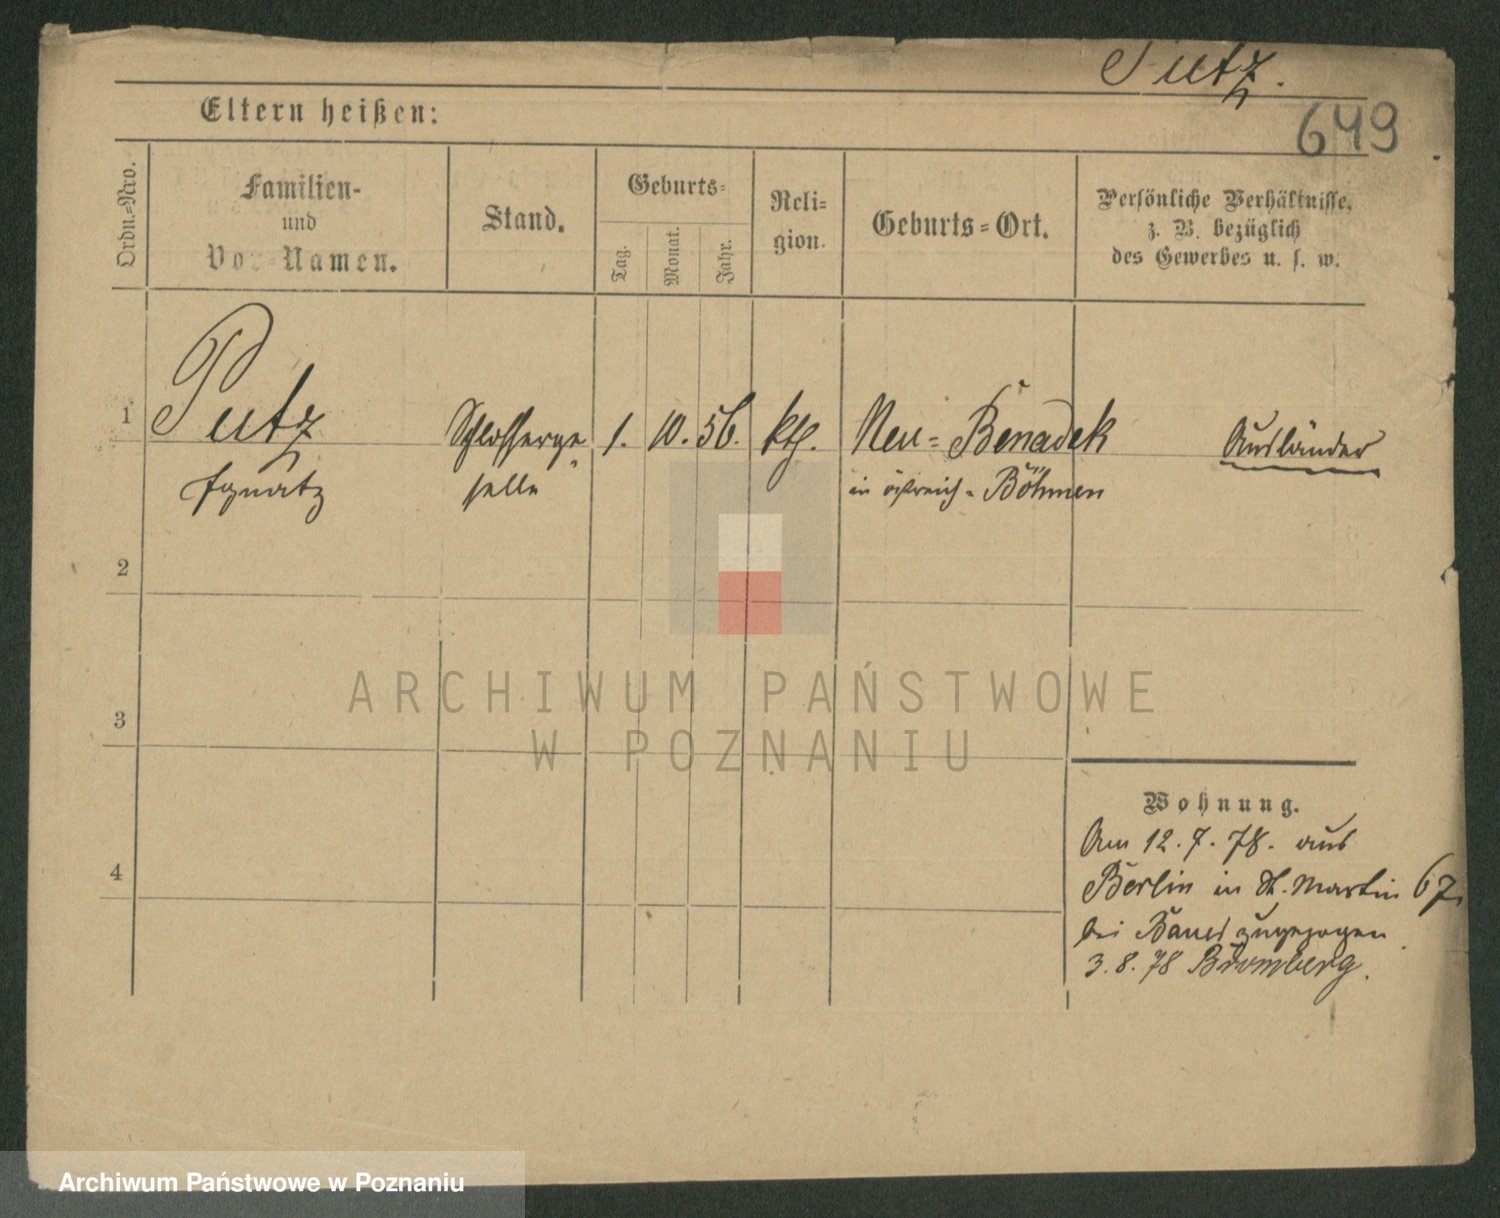 Putz.
649
Eltern heißen:
Ordn.-Nro.
Familien-
und
Vor-Namen.
Stand.
Geburts-
Tag.
Monat.
Jahr.
Reli-
gion.
Geburts-Ort.
Persönliche Verhältnisse,
z. B. bezüglich
des Gewerbes u. s. w.
1
Putz
Ignatz
Schlosserge
selle
1.
10.
56.
kth.
Neu-Benadek
in östreich-Böhmen
Ausländer
2
3
4
Wohnung.
Am 12.7.78. aus
Berlin in St. Martin 67.
bei Bauer zugezogen
3.8.78 Bromberg.
ARCHIWUM PAŃSTWOWE
W POZNANIU
Archiwum Państwowe w Poznaniu